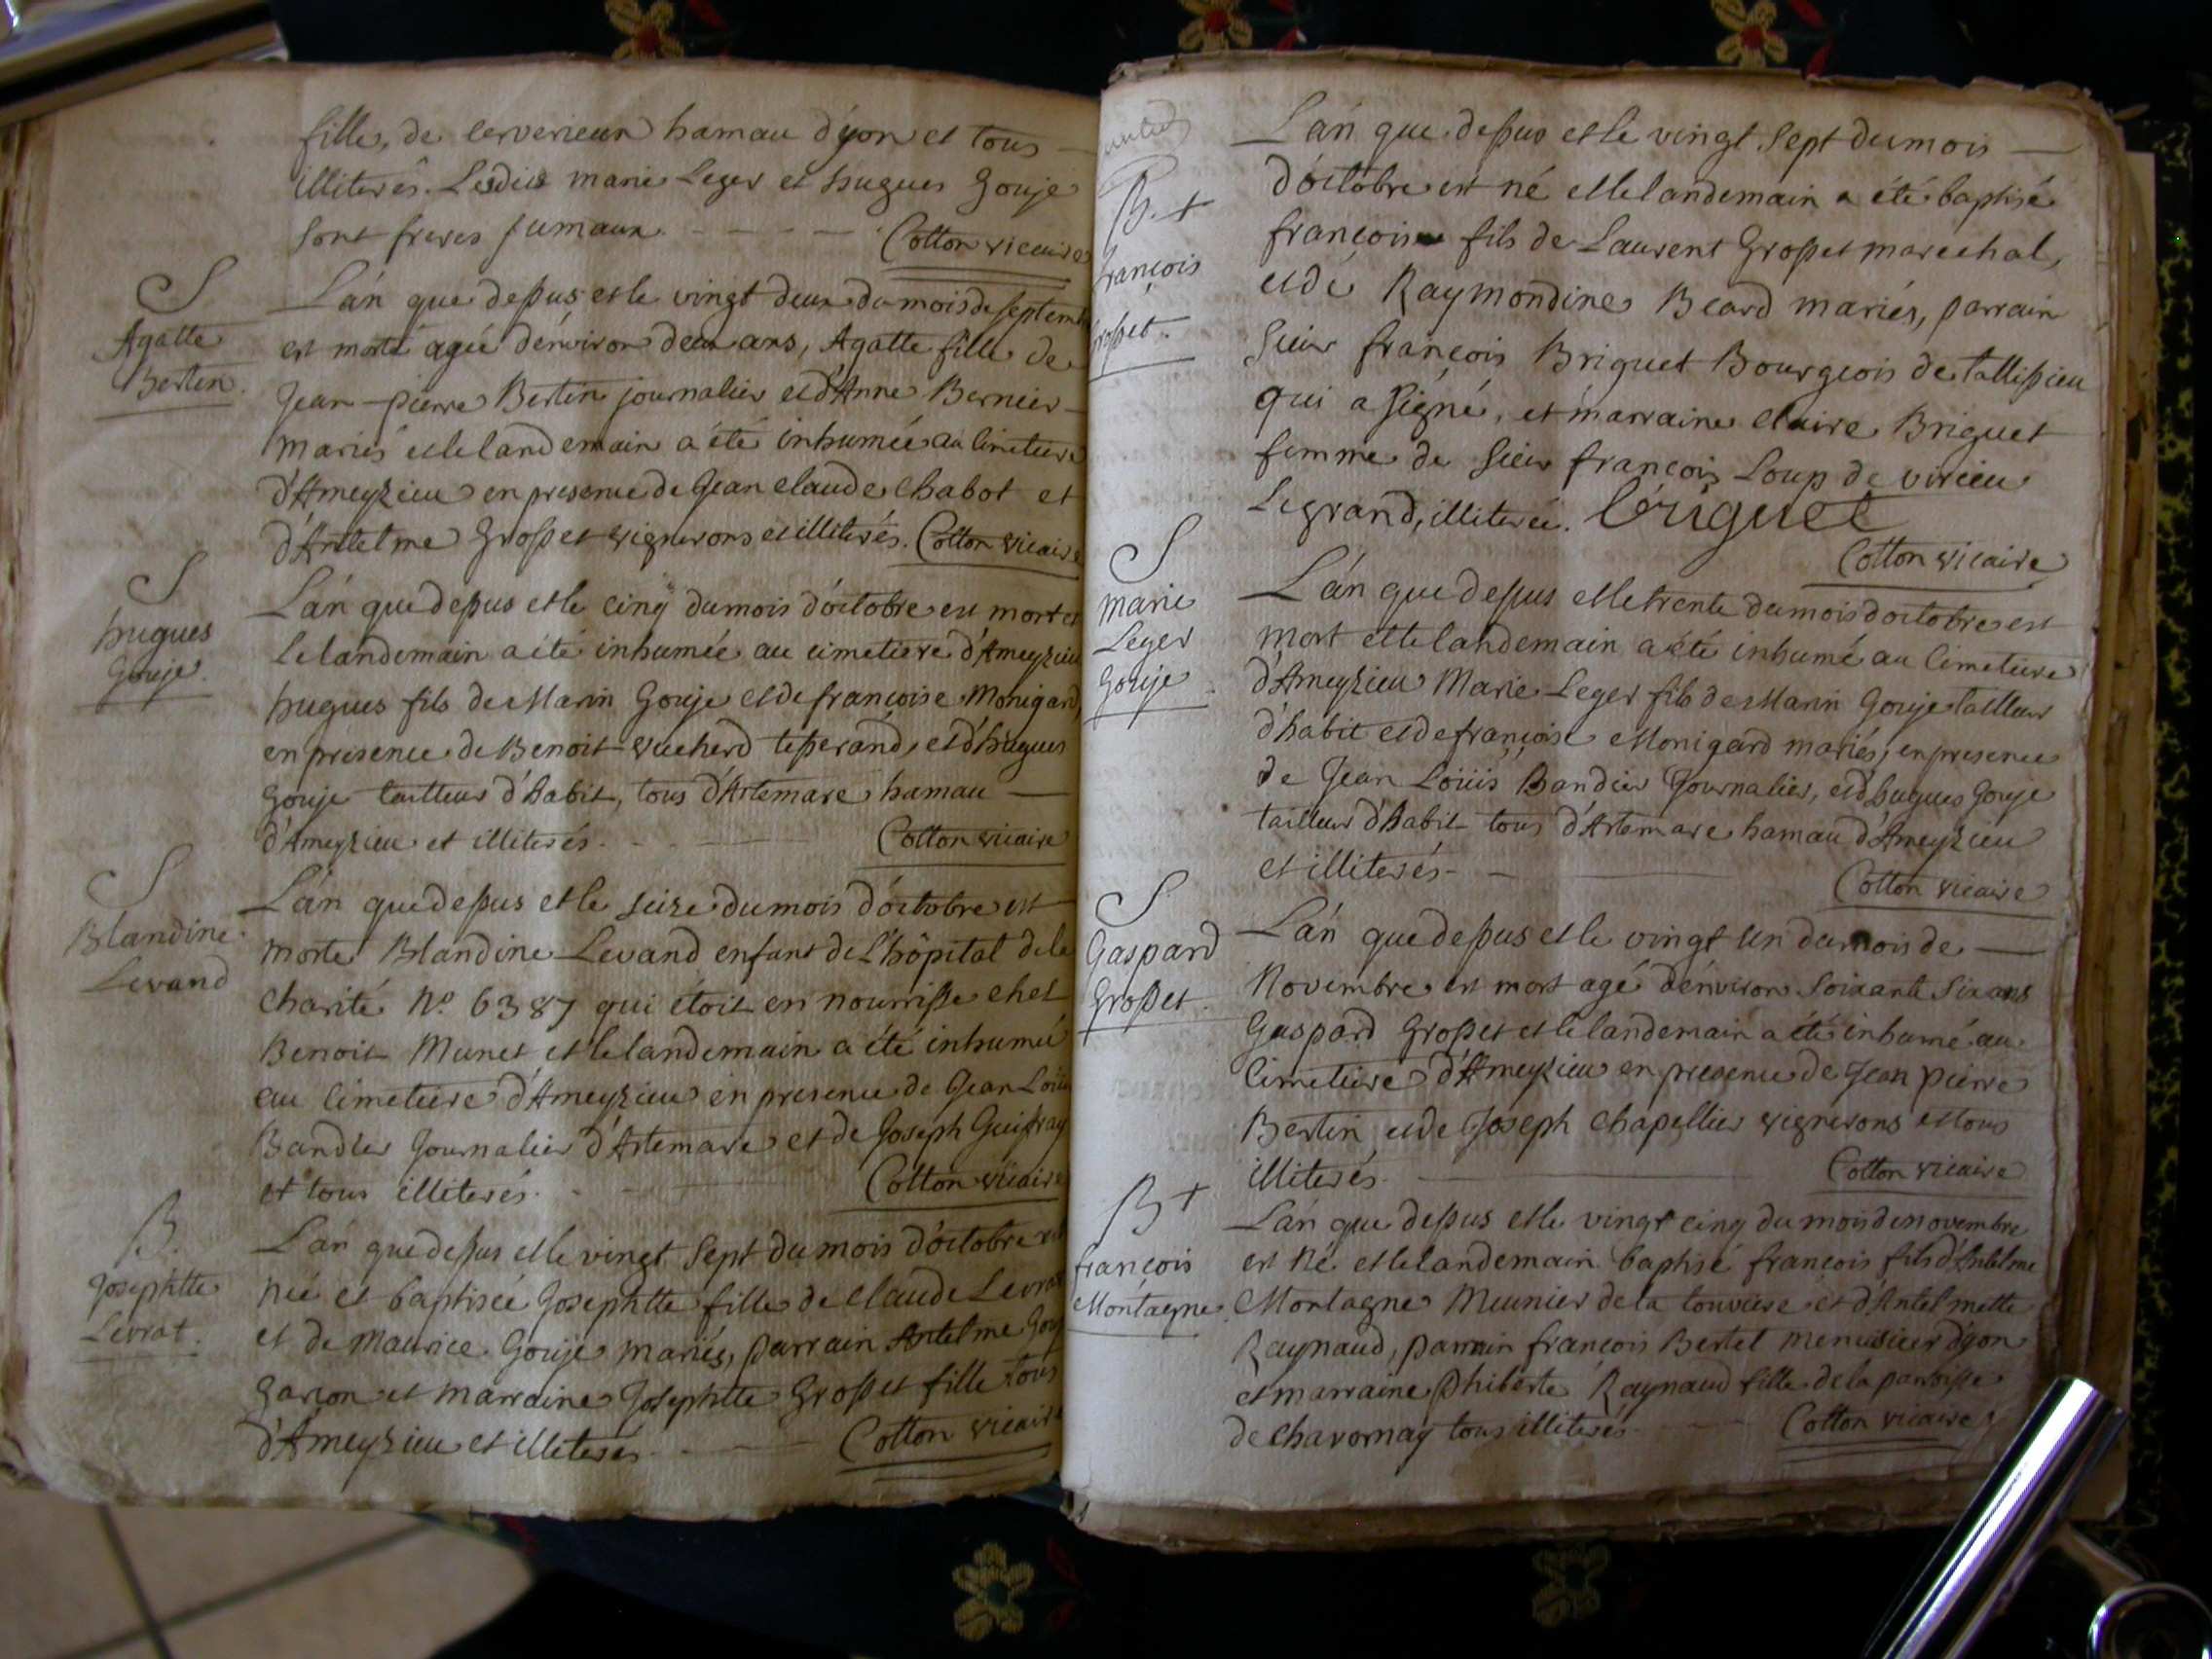 fille, de cerverieux hamau d'yon et tous
illiterés. Lesdits marie Leger et hugues Gouje
sont freres jumaux. Cotton vicaire
S
Agatte
Bertin.
L'an que dessus et le vingt deux du mois de septem
est morte agée d'environ deux ans, Agatte fille de
Jean-pierre Bertin journalier et d'Anne Bernier
mariés et le landemain a été inhumée au cimetiere
d'Ameyzieu en presence de Jean claude Chabot et
d'Antelme Grosset vignerons et illiterés. Cotton vicaire
S
hugues
Gouje.
L'an que dessus et le cinq du mois d'octobre est mort et
le landemain a été inhumée au cimetiere d'Ameyzieu
hugues fils de Marin Gouje et de françoise Monigard,
en presence de Benoit vucherd tisserand, et d'hugues
Gouje tailleur d'habit, tous d'Artemare hamau
d'Ameyzieu et illiterés. Cotton vicaire
S
Blandine
Levand
L'an que dessus et le seize du mois d'octobre est
morte Blandine Levand enfant de l'hôpital de la
charité No 6387 qui étoit en nourrisse chez
Benoit Munet et le landemain a été inhumée
au cimetiere d'Ameyzieu en presence de Jean Loüis
Bandier Journalier d'Artemare et de Joseph Guifray
et tous illiterés. Cotton vicaire
B.
Josephtte
Levrat.
L'an que dessus et le vingt sept du mois d'octobre est
née et baptisée Josephtte fille de claude Levrat
et de Maurice Gouje mariés, parrain Antelme Gouj
garçon et marraine Josephtte Grosset fille tous
d'Ameyzieu et illiterés. Cotton vicaire
B. +
françois
Grosset.
L'an que dessus et le vingt sept du mois
d'octobre est né et le landemain a été baptisé
françois fils de Laurent Grosset marechal,
et de Raymondine Beard mariés, parrain
sieur françois Briguet Bourgeois de tallissieu
qui a signé, et marraine claire Briguet
femme de sieur françois Loup de virieu
Legrand, illiterée. Briguet
Cotton vicaire
S
marie
Leger
Gouje
L'an que dessus et le trente du mois d'octobre est
mort et le landemain a été inhumé au cimetiere
d'Ameyzieu Marie Leger fils de Marin Gouje tailleur
d'habit et de françoise Monigard mariés, en presence
de Jean Loüis Bandier Journalier, et d'hugues Gouje
tailleur d'habit tous d'Artemare hamau d'Ameyzieu
et illiterés. Cotton vicaire
S
Gaspard
Grosset.
L'an que dessus et le vingt un du mois de
Novembre est mort agé d'environ soixante six ans
Gaspard Grosset et le landemain a été inhumé au
cimetiere d'Ameyzieu en presence de Jean pierre
Bertin et de Joseph Chapellier vignerons et tous
illiterés. Cotton vicaire
B +
françois
Montagne.
L'an que dessus et le vingt cinq du mois de novembre
est né et le landemain baptisé françois fils d'Antelme
Montagne Meunier de la touviere et d'Antelmette
Raynaud, parrain françois Bertet menuisier d'yon
et marraine Philiberte Raynaud fille de la parroisse
de chavornay tous illiterés. Cotton vicaire